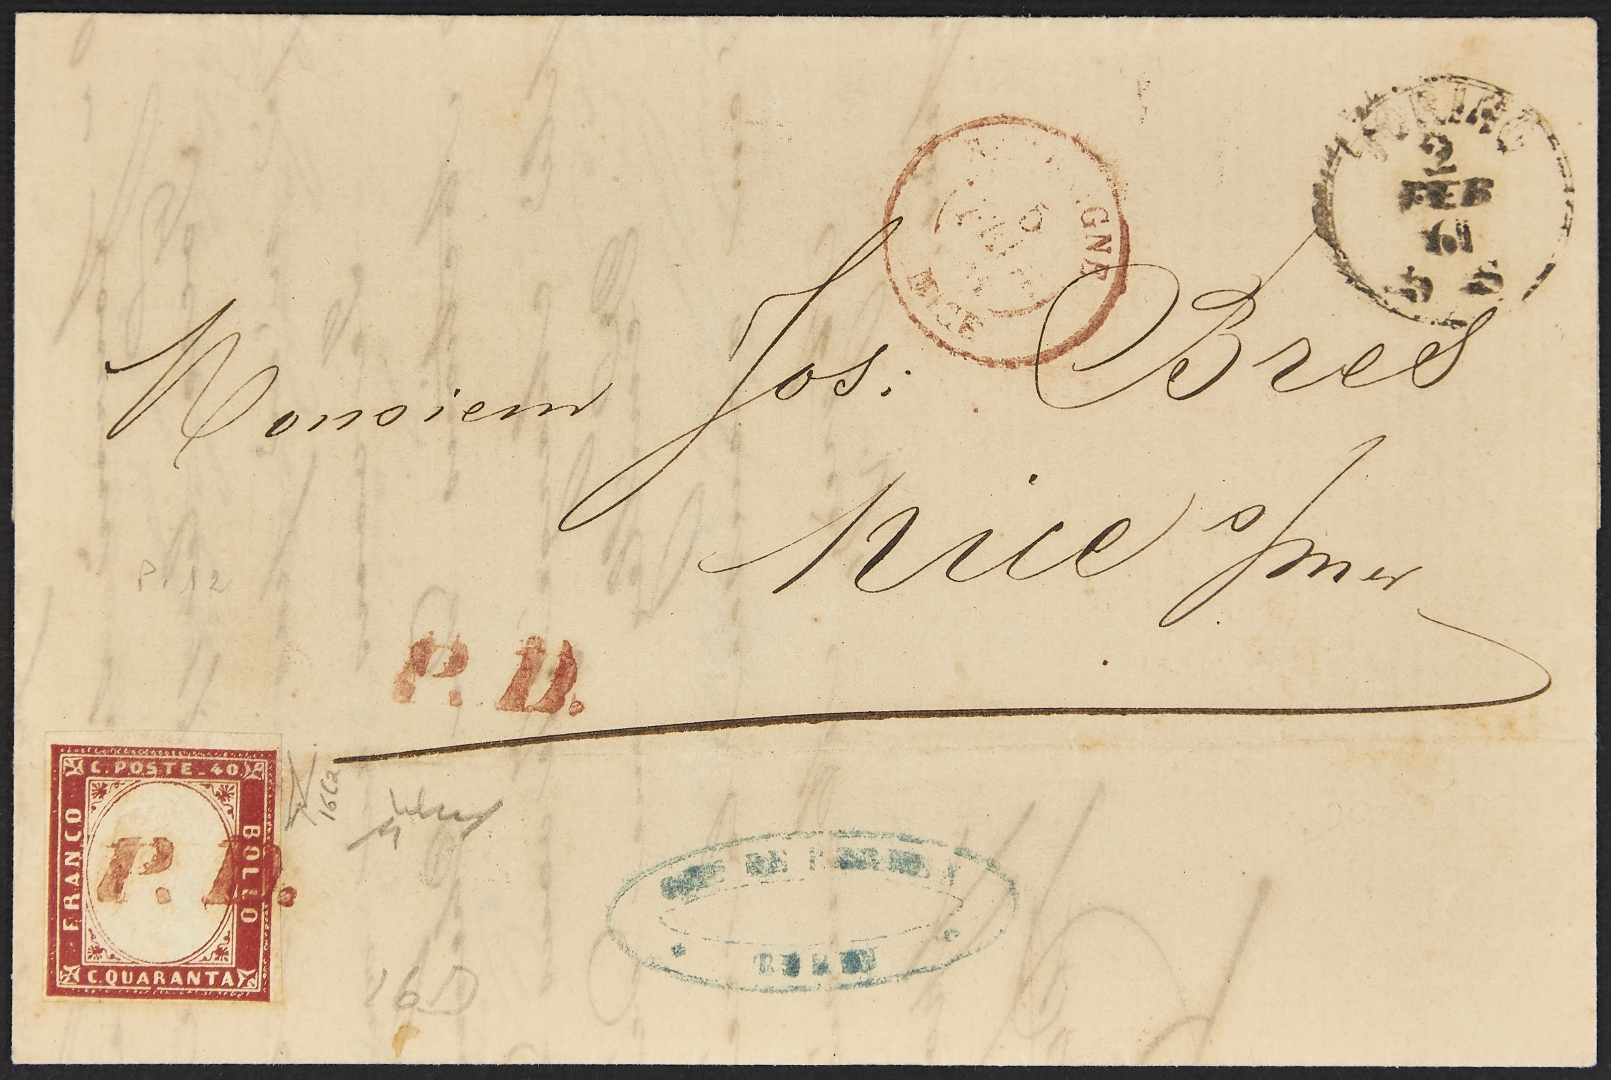 TORINO
2
FEB
61
5 S
NICE
Monsieur Jos. Bres
Nice s/mer
P. 12
P. D.
C. POSTE 40
FRANCO
BOLLO
P. D.
C. QUARANTA
16Ca
16D